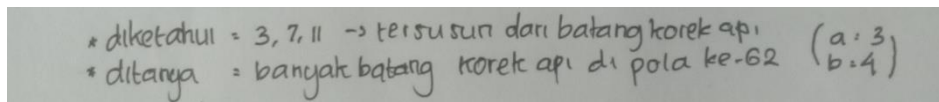 * diketahui = 3, 7, 11 -> tersusun dari batang korek api (a = 3,
* ditanya = banyak batang korek api di pola ke-62 b = 4)